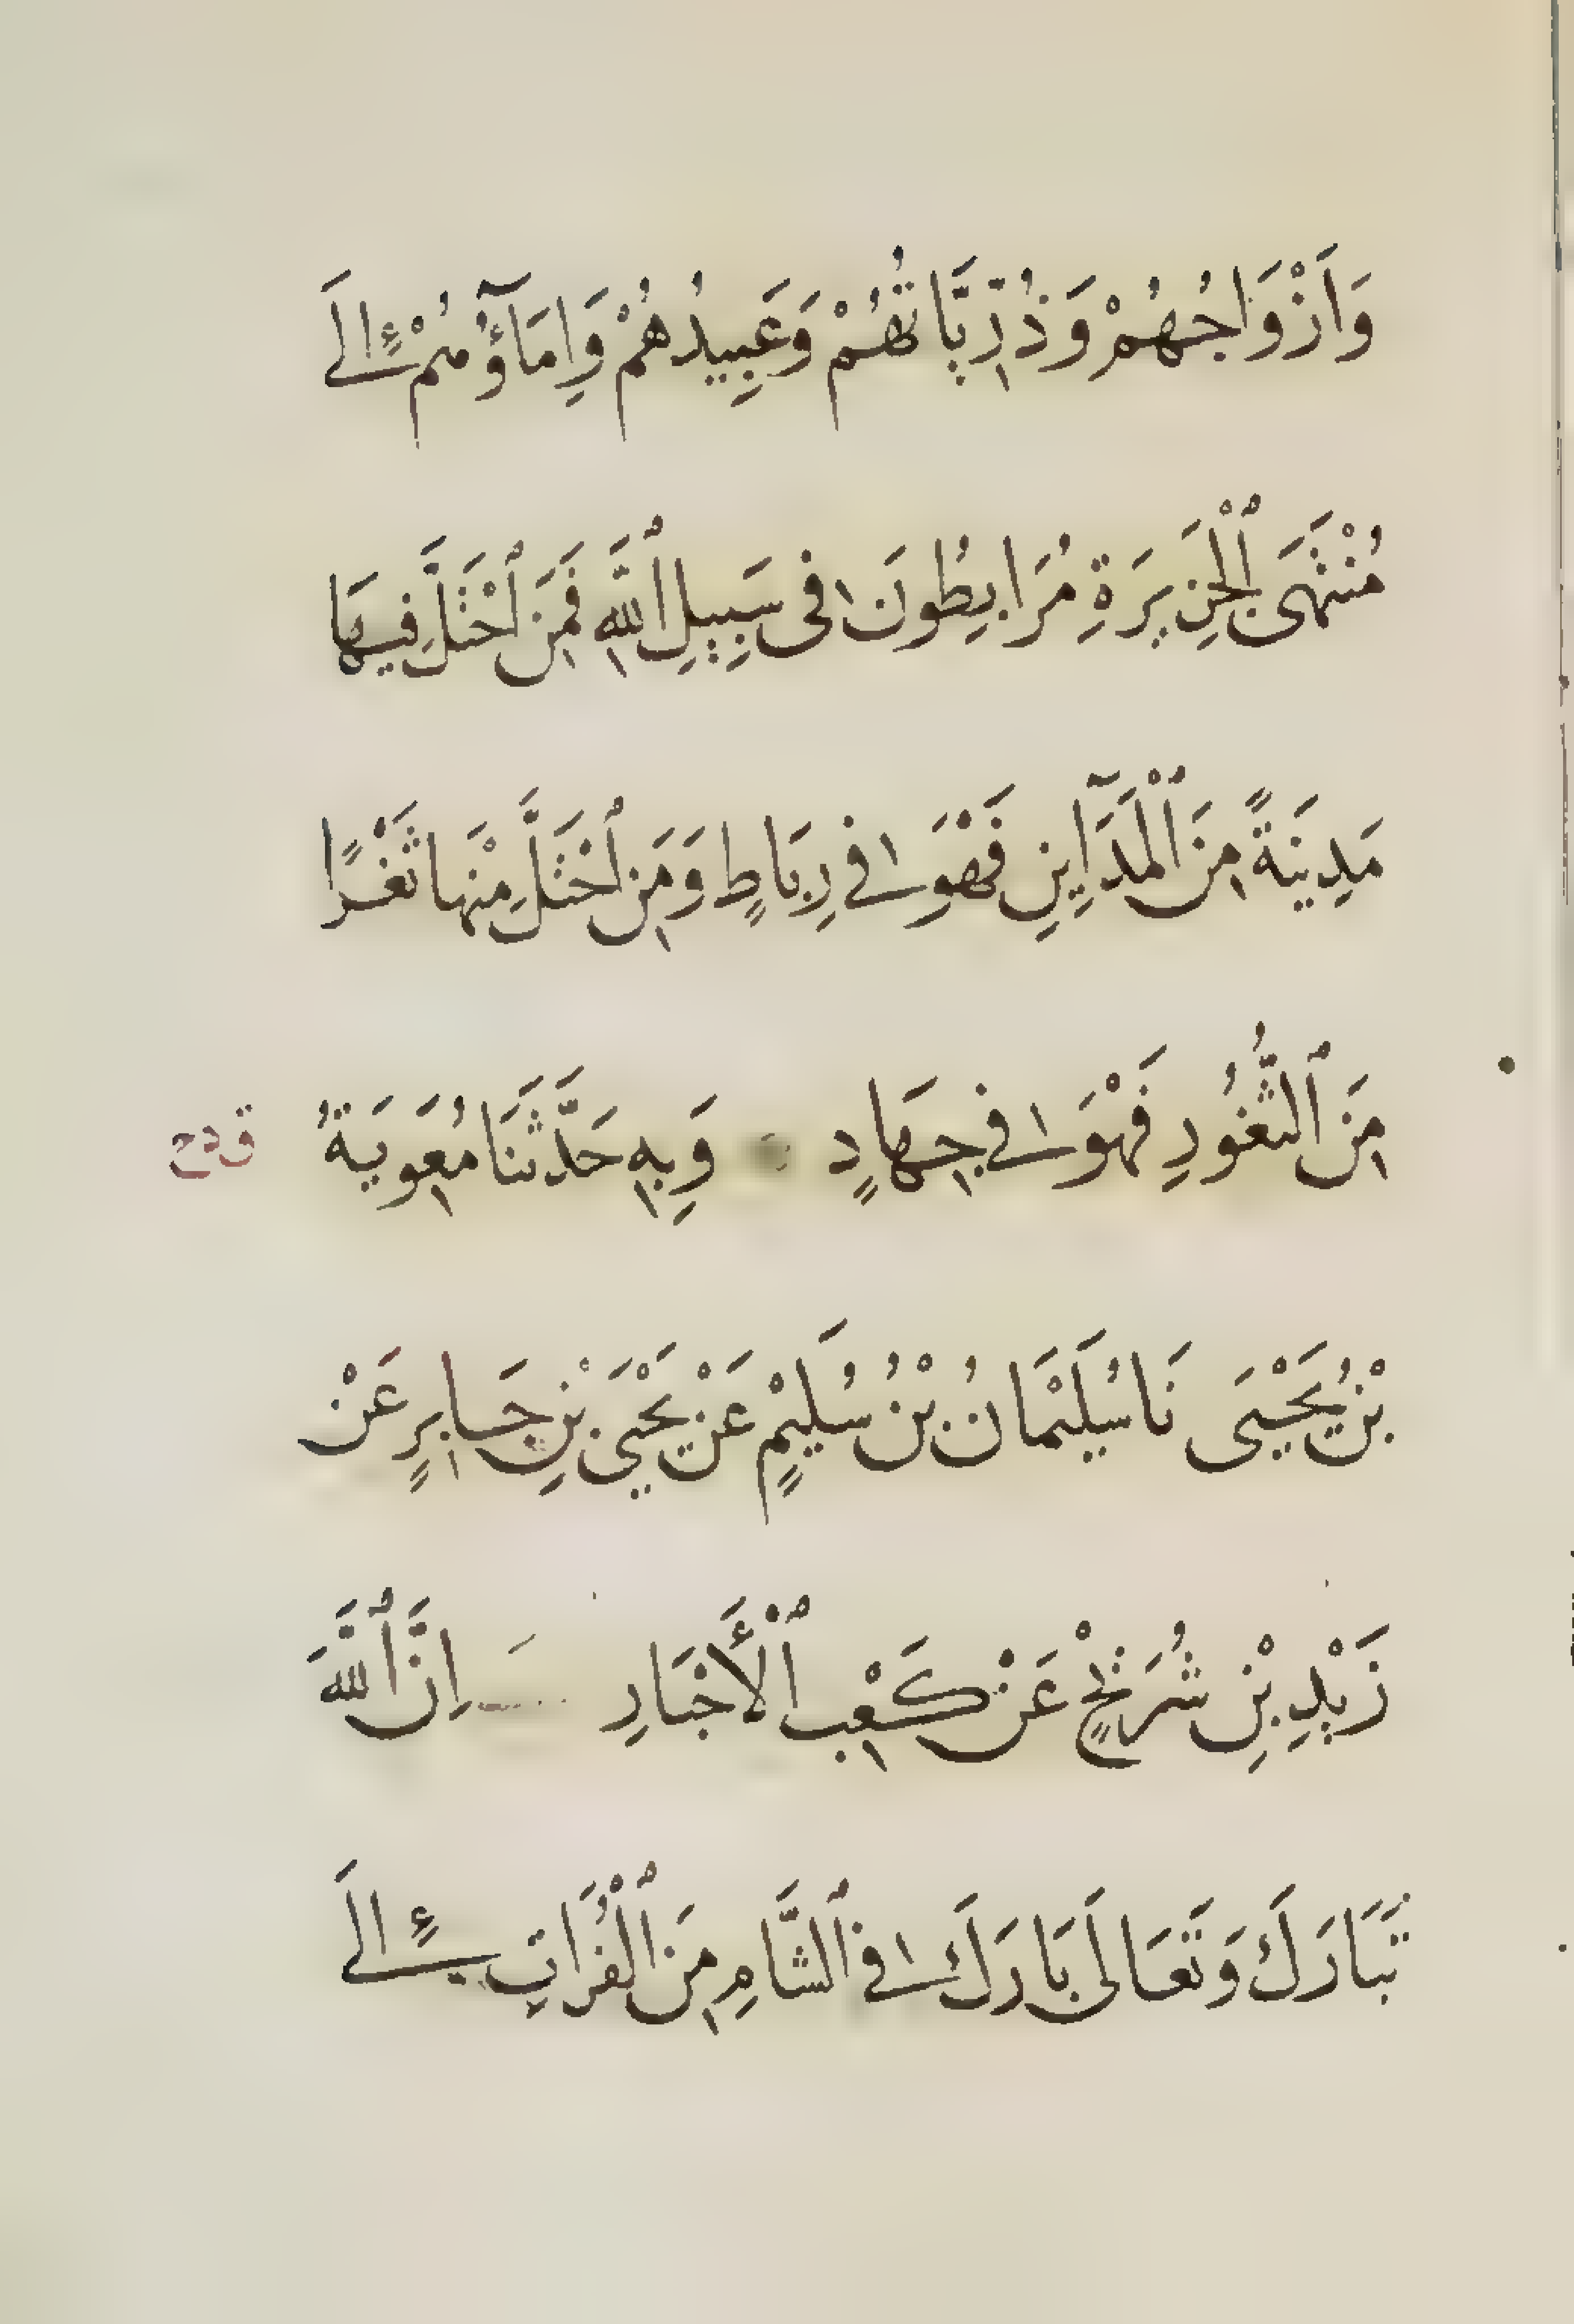 وَاَزْوَاجُهُمْ وَذُرِّيَّاتُهُمْ وَعَبِيدُهُمْ وَاِمَآؤُهُمْ إِلَى
مُنْتَهَى ٱلْجَزِيرَةِ مُرَابِطُونَ فِى سَبِيلِ ٱللَّهِ فَمَنِ ٱحْتَلَّ فِيهَا
مَدِينَةً مِنَ ٱلْمَدَآيِنِ فَهْوَ فِى رِبَاطٍ وَمَنِ ٱحْتَلَّ مِنْهَا ثَغْرًا
مِنَ ٱلثُّغُورِ فَهْوَ فِى جِهَادٍ وَبِهِ حَدَّثَنَا مُعَوِيَةُ
بْنُ يَحْيَى نَا سُلَيْمَانُ بْنُ سُلَيْمٍ عَنْ يَحْيَى بْنِ جَابِرٍ عَنْ
زَيْدِ بْنِ شُرَيْحٍ عَنْ كَعْبِ ٱلْأَحْبَارِ اِنَّ ٱللَّهَ
تَبَارَكَ وَتَعَالَى بَارَكَ فِى ٱلشَّامِ مِنَ ٱلْفُرَاتِ إِلَى